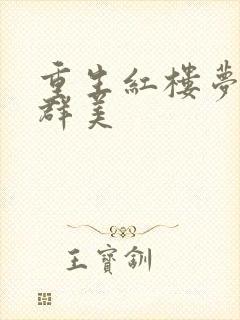 重生紅樓夢
群美
王寶釧